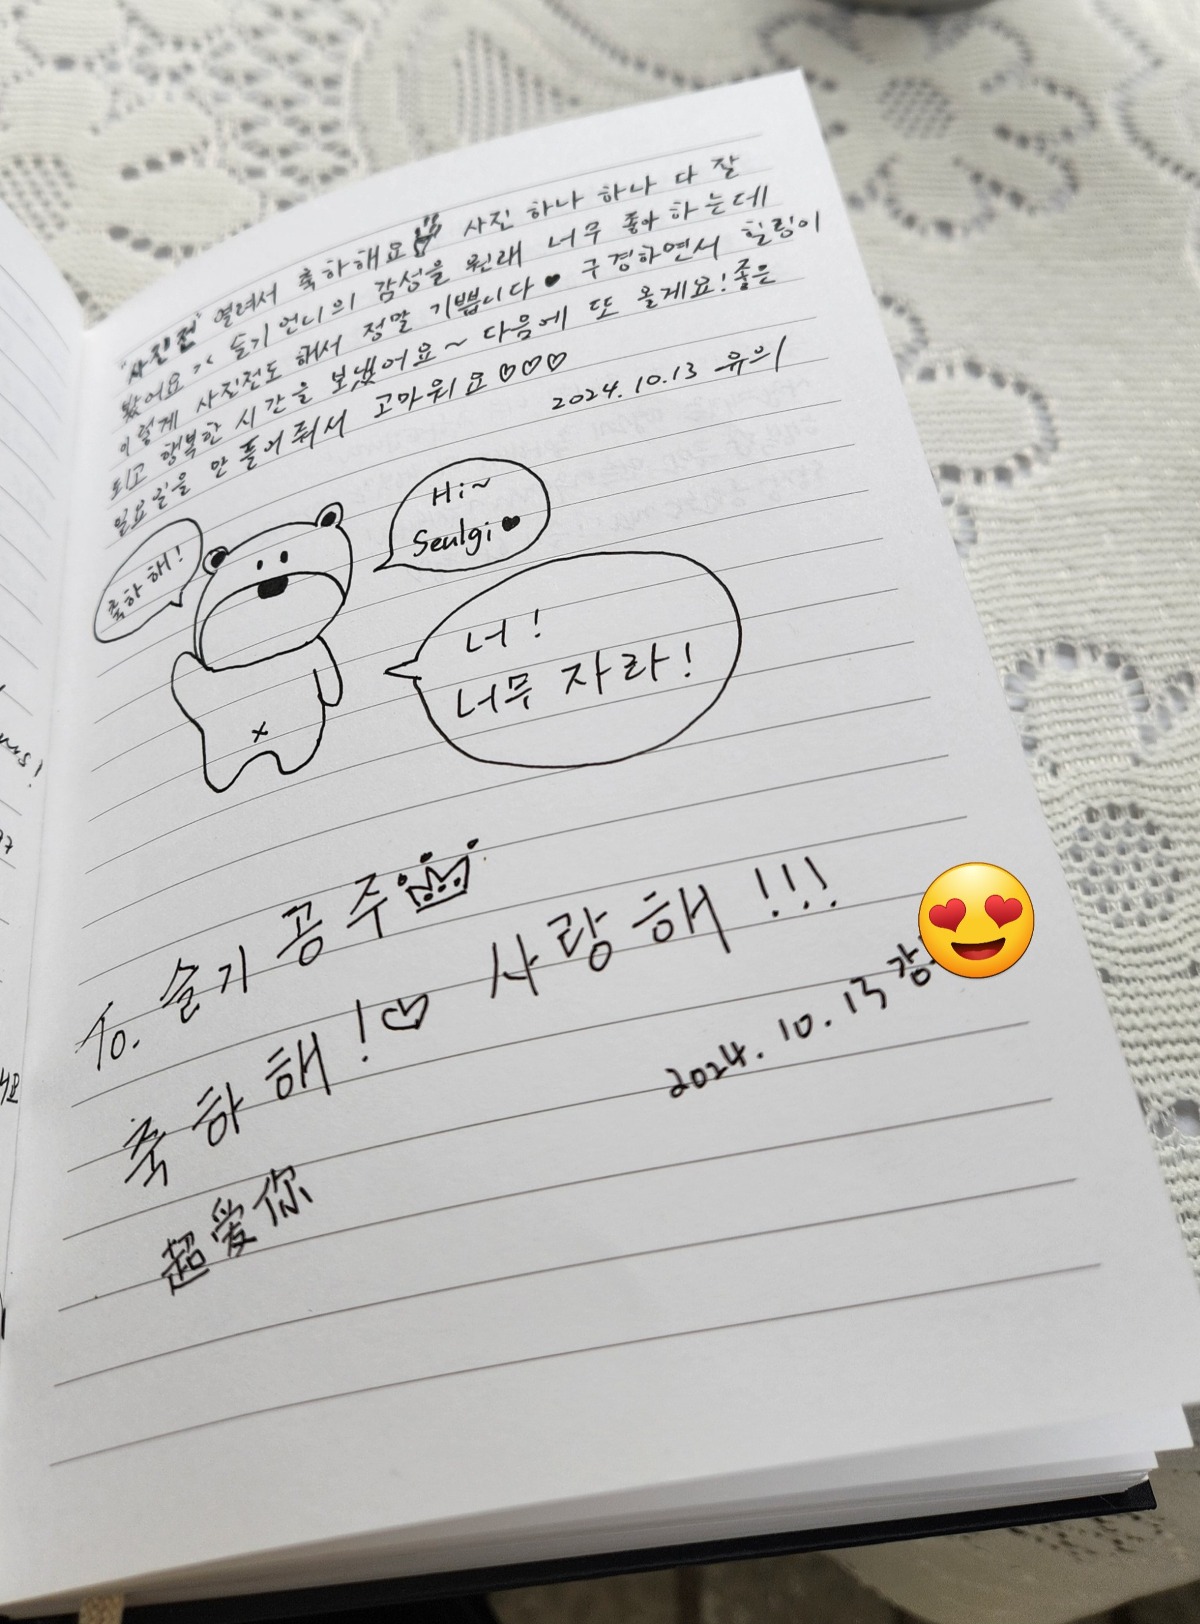 "사진전" 열려서 축하해요 사진 하나 하나 다 잘
봤어요 >< 슬기 언니의 감성을 원래 너무 좋아하는데
이렇게 사진전도 해서 정말 기쁩니다♥ 구경하면서 힐링이
되고 행복한 시간을 보냈어요~ 다음에 또 올게요! 좋은
일요일을 만들어줘서 고마워요♡♡♡
2024.10.13 유의
축하해!
Hi~
Seulgi♥
너!
너무 자라!
To. 슬기 공주
축하해!♡ 사랑해!!!
2024.10.13
超爱你